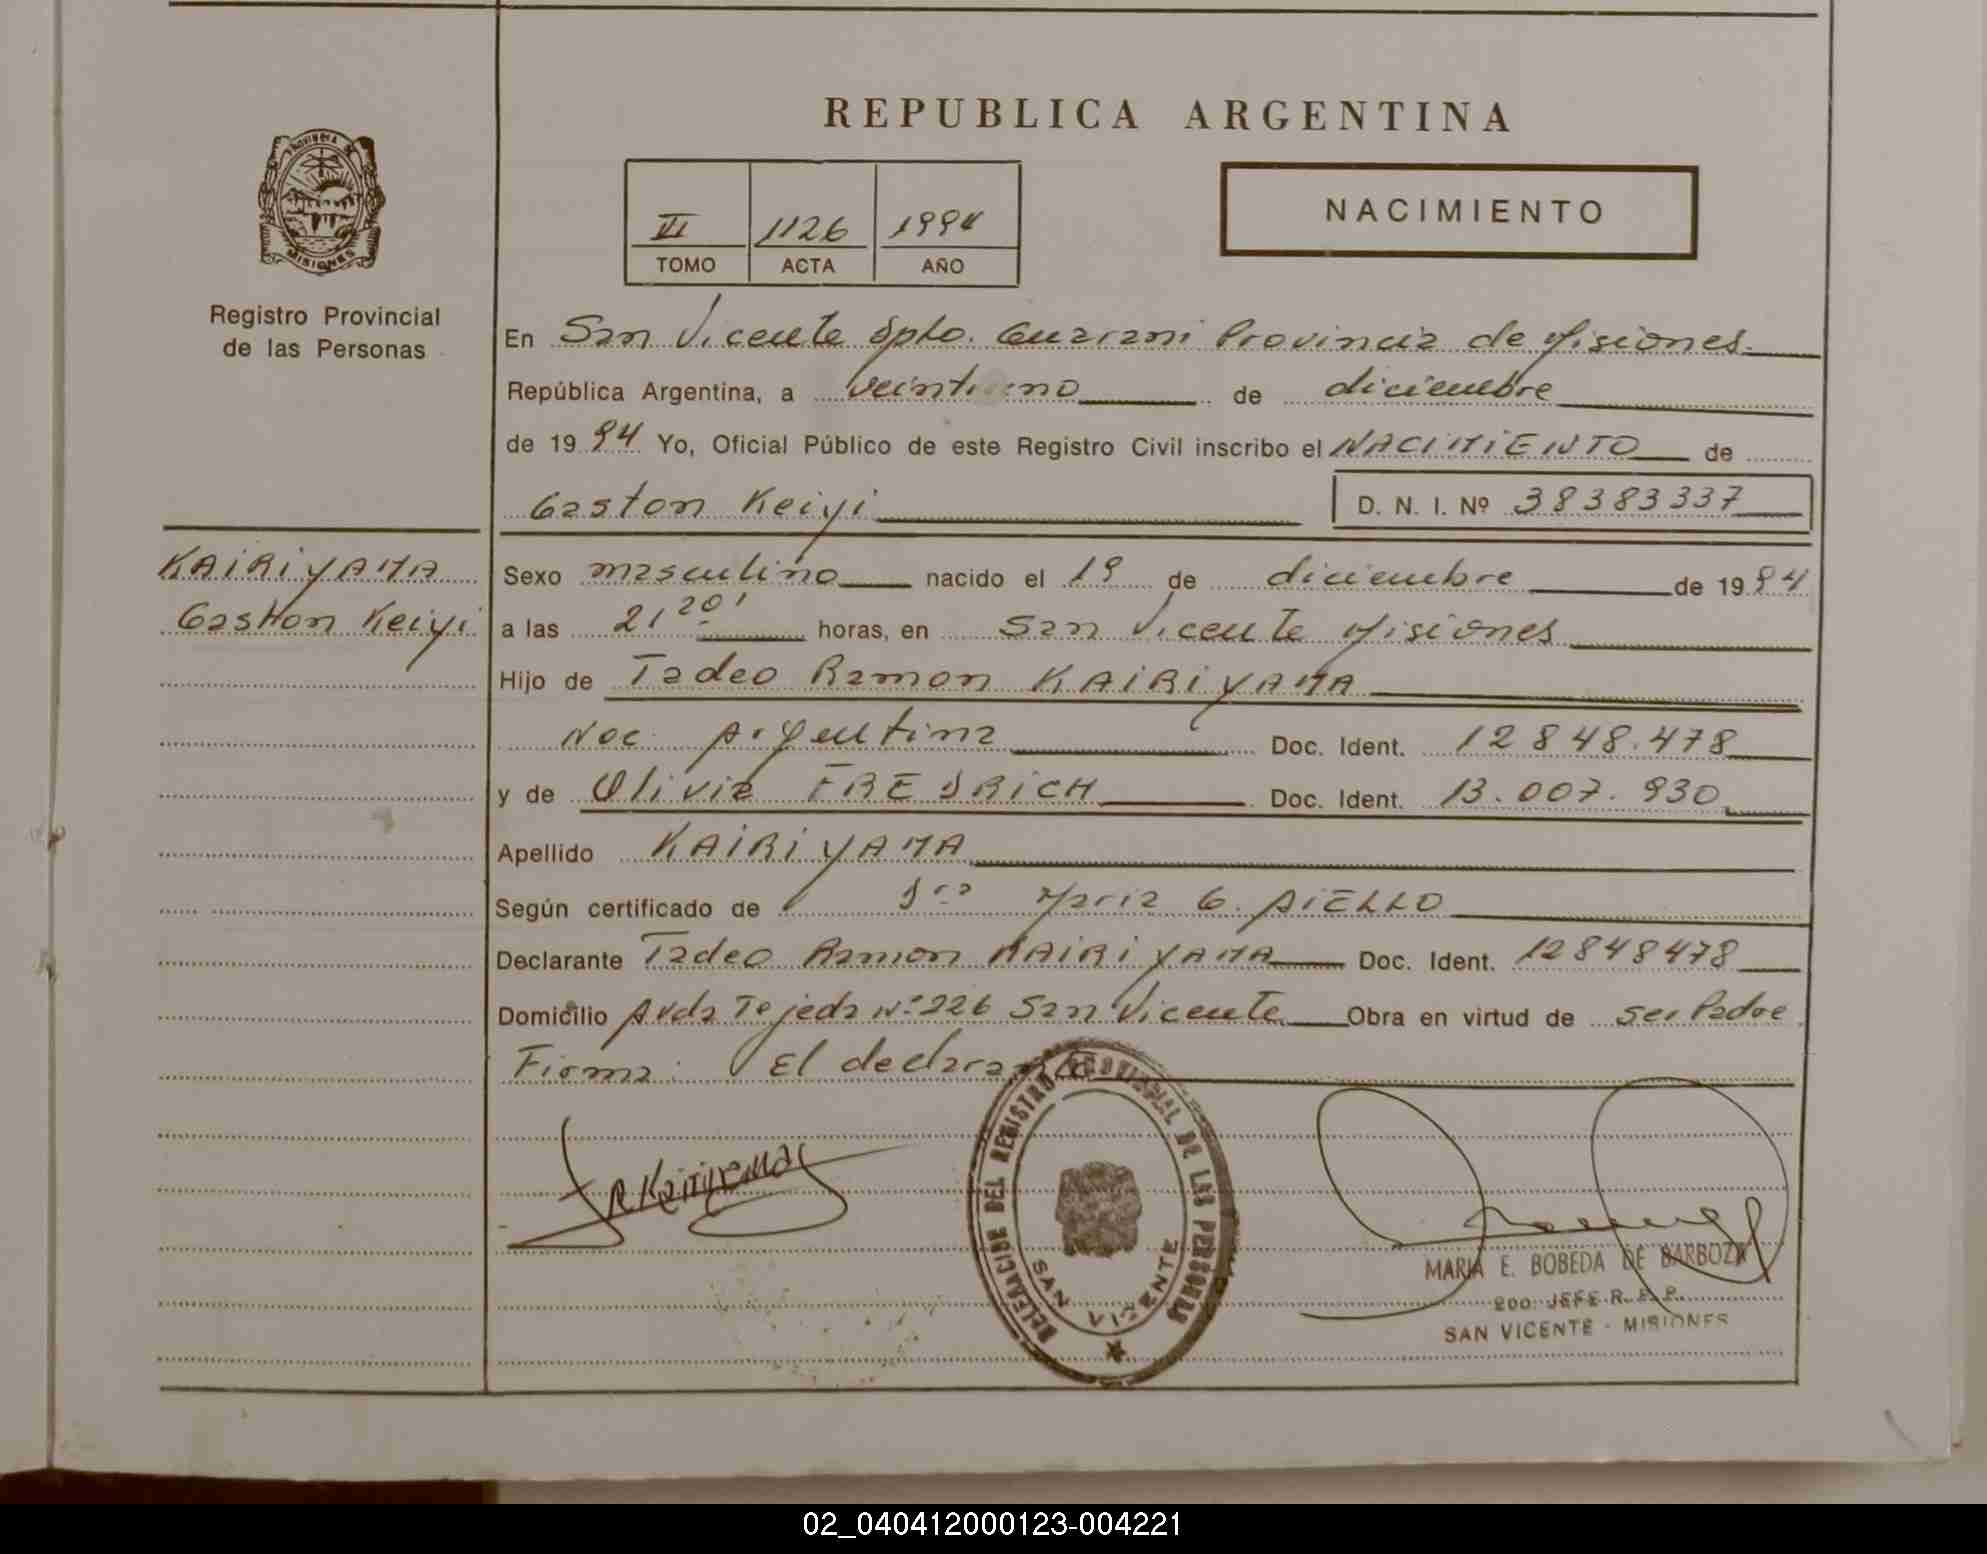 REPUBLICA ARGENTINA
PROVINCIA DE
MISIONES
Registro Provincial
de las Personas
II 1126 1994
TOMO ACTA AÑO
NACIMIENTO
En San Vicente Dpto. Guarani Provincia de Misiones
República Argentina, a veintiuno de diciembre
de 1994 Yo, Oficial Público de este Registro Civil inscribo el NACIMIENTO de
Gaston Keiyi D. N. I. Nº 38383337
KAIRIYAMA
Gaston Keiyi
Sexo masculino nacido el 19 de diciembre de 1994
a las 21 20' horas, en San Vicente Misiones
Hijo de Tadeo Ramon KAIRIYAMA
Nac. Argentina Doc. Ident. 12848.478
y de Olivia FREDRICH Doc. Ident. 13.007.930
Apellido KAIRIYAMA
Según certificado de Dra Maria G. AIELLO
Declarante Tadeo Ramon KAIRIYAMA Doc. Ident. 12848478
Domicilio Avda Tejeda Nº 226 San Vicente Obra en virtud de ser Padre
Firma: El declarante
TRKairiyama
DELEGACION DEL REGISTRO PROVINCIAL DE LAS PERSONAS
SAN VICENTE
MARIA E. BOBEDA DE BARBOZA
2do. JEFE R. P. P.
SAN VICENTE - MISIONES
02_040412000123-004221